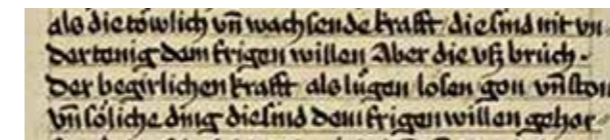 als die töwlich vn̄ wachsende krafft die sind nit vn
dertenig dem frigen willen Aber die vß brüch
der begirlichen krafft als lůgen losen gon vn̄ ston
vn̄ söliche ding die sind dem frigen willen gehor